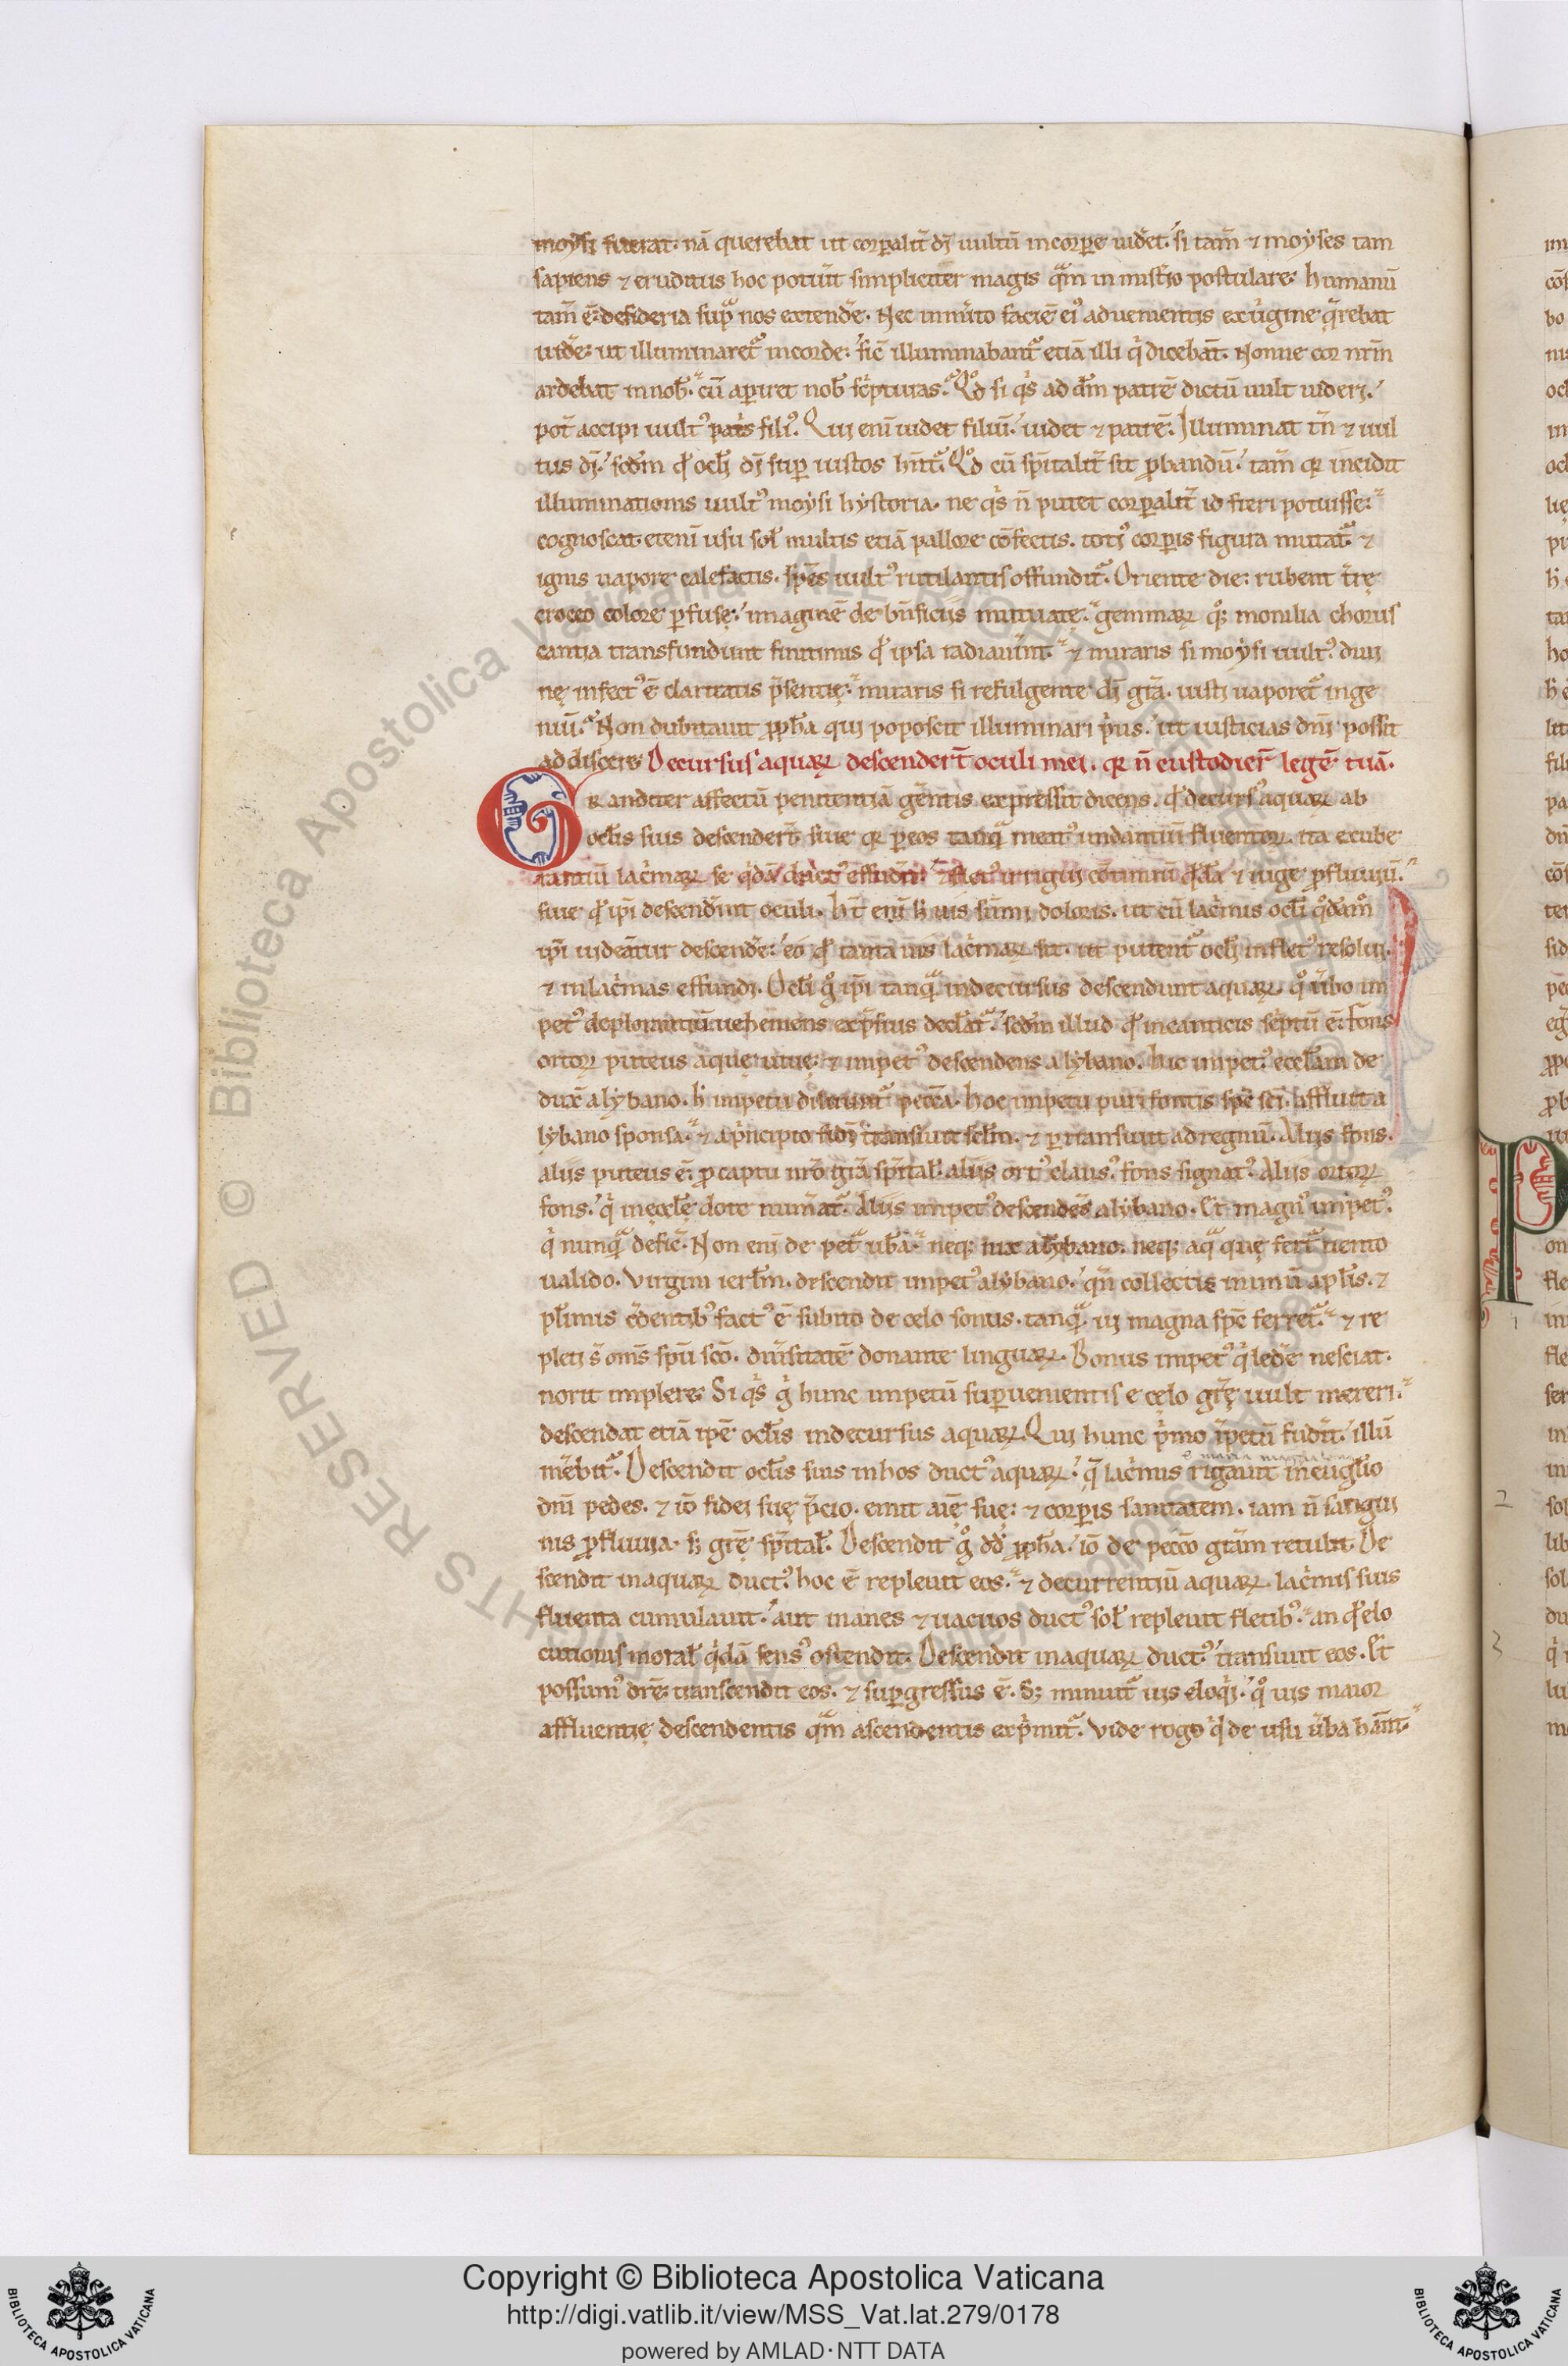 moysi fuerat. nā querebat ut corꝑalit̄ dī uultū incorꝑe uidet. si tam̄ ⁊ moyses tam
sapiens ⁊ eruditus hoc potuit simpliciter magis qᵃm in mist̄io postulare. humanū
tam̄ ē. desideria supᵃ nos extendē̄. Nec inmito faciē ei᷒ aduenientis ex uirgine q̄rebat
uidē̄. ut illuminaret᷑ incorde. sic̄ illuminabant᷑ etiā illi qⁱ dicebāt. Nonne cor nr̄m
ardebat in nob̄. cū aꝑiret nob̄ sc̄pturas. Qd̊ si qⁱs ad dm̄ patrē dictū uult uideri.
pot̄ accipi uult᷒ patⁱs fili᷒. Qui eni uidet filiū. uidet ⁊ patrē. Illuminat tn̄ ⁊ uul
tus dī. scdm̄ qđ ocli dī suꝑ iustos hn̄t᷑. Qd̊ cū spitalit̄ sit ꝓbandū. tam̄ qꝛ incidit
illuminationis uult᷒ moysi hystoria. ne qⁱs n̄ putet corꝑalit̄ id fieri potuisse.
cognoscat. eteni usu sol̄ multis etiā pallore cōfectis. toti᷒ corꝑis figura mutat᷑. ⁊
ignis uapore calefactis. spēs uult᷒ rutilantis offundit᷑. Oriente die. rubent t̄rę
croceo colore ꝑfusę. imaginē de bn̄ficiis mutuatę. gemmaꝝ qͦꝫ monilia chorus
cantia transfundunt finitimis qđ ipsa radiauint. ⁊ miraris si moysi uult᷒ diui
nę infect᷒ ē claritatis p̄sentię. miraris si refulgente di gr̄a. iusti uaporet᷑ inge
niū. Non dubitauit ꝓph̄a qui poposcit illuminari pⁱus. ut iusticias dn̄i possit
addiscere. Decursus aquaꝝ descendert̄ oculi mei. qꝛ n̄ custodier̄ legē tuā.
Granditer affectū penitentiā gētis expressit dicens. qđ decurs᷒ aquaꝝ ab
oclīs suis descendert̄. siue qꝛ ꝑeos tanqᵃ meat᷒ undantiū fluentoꝝ. ita exube
rantiū lacⁱmaꝝ se qⁱdā duct᷒ effudit. ⁊ flet᷒ irrigui cōtinuū qđdā ⁊ iuge ꝓfluuiū.
siue qđ ipi descendunt oculi. Ht̄ eni h̄ uis sūmi doloris. ut cū lacⁱmis ocli qͦdāmͦ
ipi uideātur descendē̄. eo qđ tanta uis lacⁱmaꝝ sit. ut putent᷑ ocli inflet᷒ resolui.
⁊ inlacⁱmas effundi. Ocli gͦ ipi tanqᵃ indecursus descendunt aquaꝝ. qͦ ūbo im
pet᷒ deplorantiū uehemens exp̄sius declat᷑. scdm̄ illud qđ incanticis sc̄ptū ē. fons
ortoꝝ puteus aquę uiuę. ⁊ impet᷒ descendens a lybano. Hic impet᷒ eccl̄am de
dux̄ a lybano. h̄ impetu diluunt᷑ pecc̄a. hoc impetu puri fontis spē sci. affluit a
lybano sponsa. ⁊ apⁱncipio fidi transiuit sclm̄. ⁊ ꝑtransiuit ad regnū. Aliis fons.
aliis puteus ē. ꝓ captu nr̄o gr̄a spital̄. aliis ort᷒ claus᷒. fons signat᷒. Aliis ortoꝝ
fons. qⁱ inęccl̄ę dote numat᷑. Aliis impet᷒ descendēs alybano. Et magn᷒ impet᷒.
qⁱ nunqᵃ deficē. Non eni de petᵃ ubā. neqꝫ nix a lybano. neqꝫ aqᵃ quę fert᷑ uento
ualido. Virgini ierl̄m. descendit impet᷒ alybano. qn̄ collectis inunū apl̄is. ⁊
plīmis c̄dentib᷒ fact᷒ ē subito de celo sonus. tanqᵃ. ui magna spē ferret᷑. ⁊ re
pleti s̄ oms̄ spū scō. diūsitatē donante linguaꝝ. Bonus impet᷒ qⁱ ledē̄ nesciat.
norit implere. Si qⁱs gͦ hunc impetū suꝑuenientis e cęlo gr̄ę uult mereri.
descendat etiā ipē oclīs indecursus aquaꝝ. Qui hunc pⁱmo īpetū fudit. illū
mēbit᷑. Descendit oclīs suis inhos duct᷒ aquaꝝ. q̄ lacⁱmis rigauit ineuglio
maria magdalena
dn̄i pedes. ⁊ iō fidei suę p̄cio. emit aīę suę. ⁊ corꝑis sanitatem. iam n̄ sāngui
nis ꝓfluuia. sꝫ grę̄ spital̄. Descendit gͦ dd̄ ꝓph̄a. iō de peccō gr̄am retulit. De
scendit inaquaꝝ duct᷒. hoc ē repleuit eos. ⁊ decurrentiū aquaꝝ. lacⁱmis suis
fluenta cumulauit. aut inanes ⁊ uacuos duct᷒ sol̄ repleuit fletib᷒. an qđ elo
cutionis moral̄ qⁱdā sens᷒ ostendit. Descendit inaquaꝝ duct᷒. transiuit eos. Et
possum᷒ drē. transcendit eos. ⁊ suꝑgressus ē. Sꝫ minuit᷑ uis eloqⁱi. qͦ uis maior
affluentię descendentis qᵃm ascendentis expⁱmit᷑. Vide rogo qⁱ de usu ūba hānt.
2
3
Copyright © Biblioteca Apostolica Vaticana
http://digi.vatlib.it/view/MSS_Vat.lat.279/0178
powered by AMLAD·NTT DATA
BIBLIOTECA APOSTOLICA VATICANA
BIBLIOTECA APOSTOLICA VATICANA